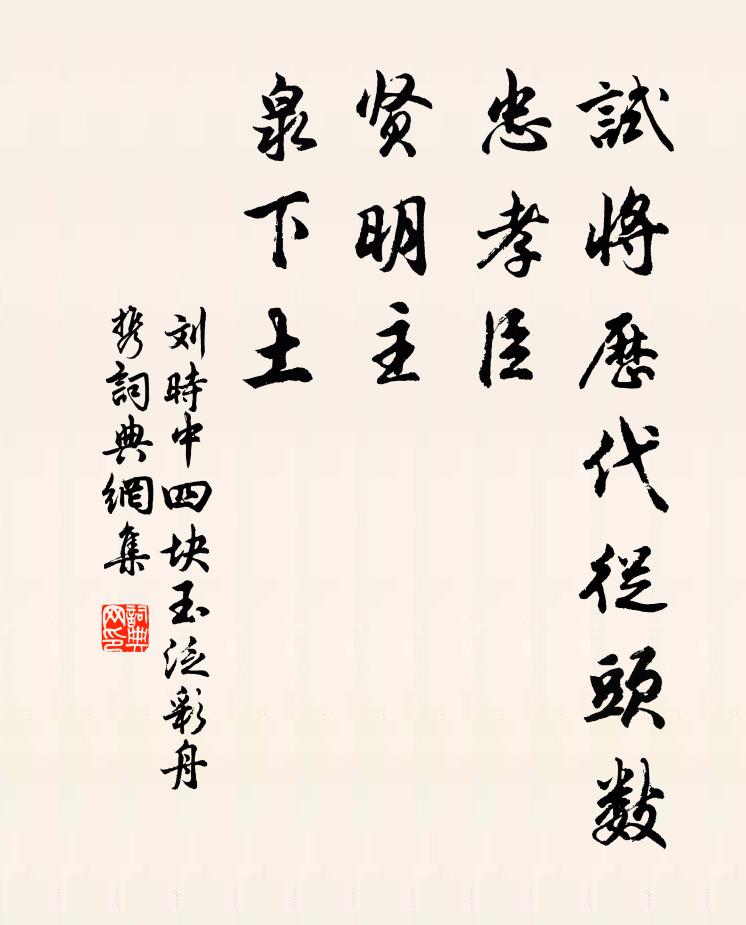 試將歷代從頭數
忠孝臣
贤明主
泉下土
刘時中四块玉泛彩舟
詞典網集
詞典网印